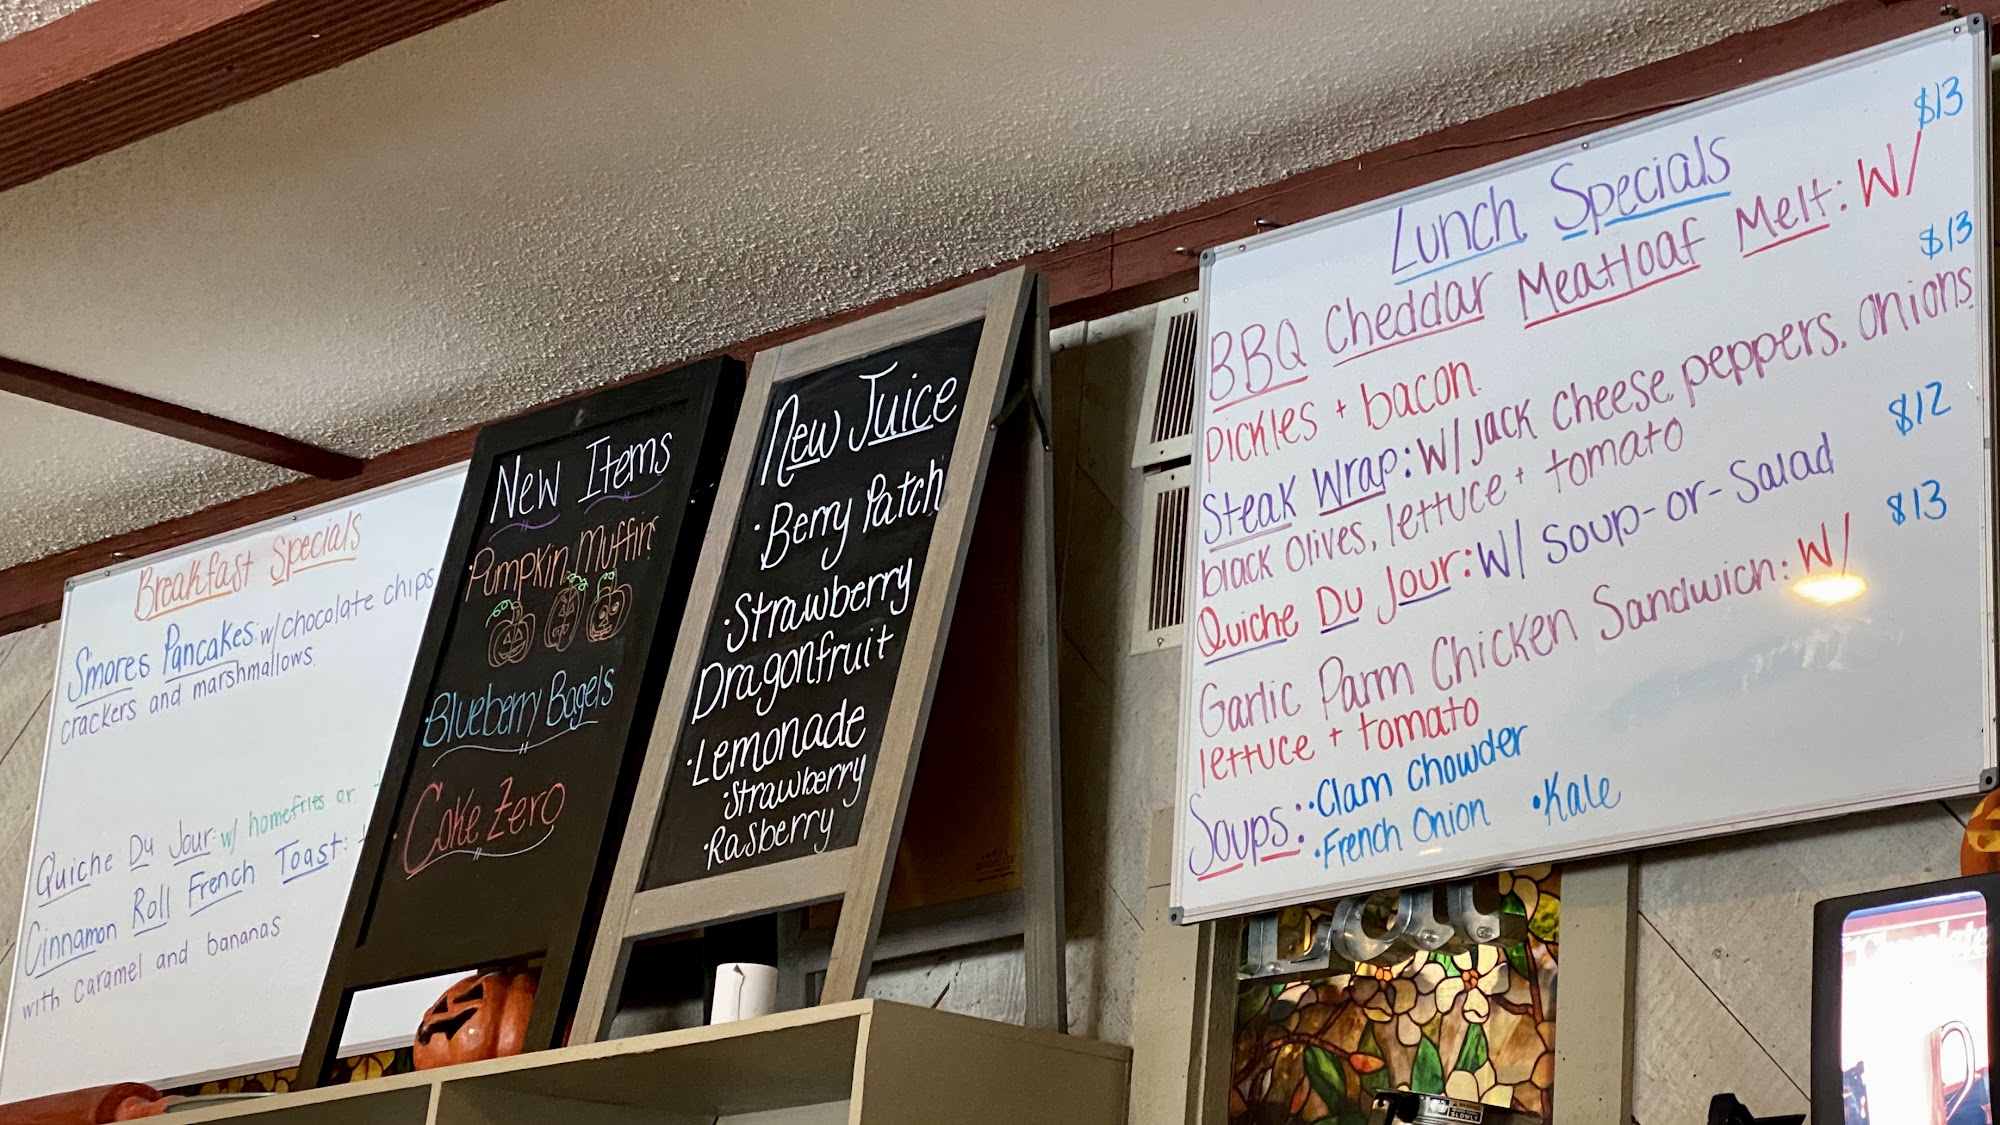 Breakfast Specials
S'mores Pancakes: w/ chocolate chips
crackers and marshmallows
Quiche Du Jour: w/ homefries or
Cinnamon Roll French Toast:
with caramel and bananas
New Items
·Pumpkin Muffins
·Blueberry Bagels
·Coke Zero
New Juice
·Berry Patch
·Strawberry
Dragonfruit
·Lemonade
·Strawberry
·Rasberry
Lunch Specials
$13
BBQ Cheddar Meatloaf Melt: W/
pickles + bacon
$13
Steak Wrap: W/ jack cheese, peppers, onions,
black olives, lettuce + tomato
$12
Quiche Du Jour: W/ soup-or-salad
$13
Garlic Parm Chicken Sandwich: W/
lettuce + tomato
Soups: ·Clam Chowder
·French Onion ·Kale